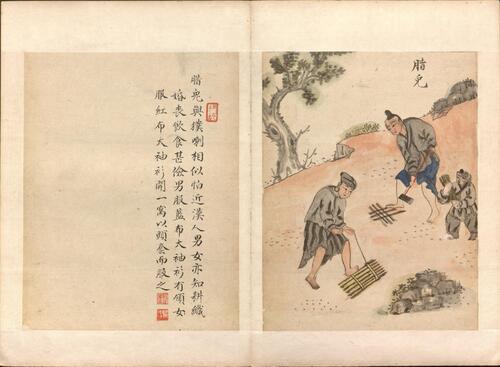 腊兜與撲喇相似怕近漢人男女亦知耕織
婚喪飲食甚儉男服藍布大袖衫有領女
服紅布大袖衫開一窩以頭套而服之
腊兜